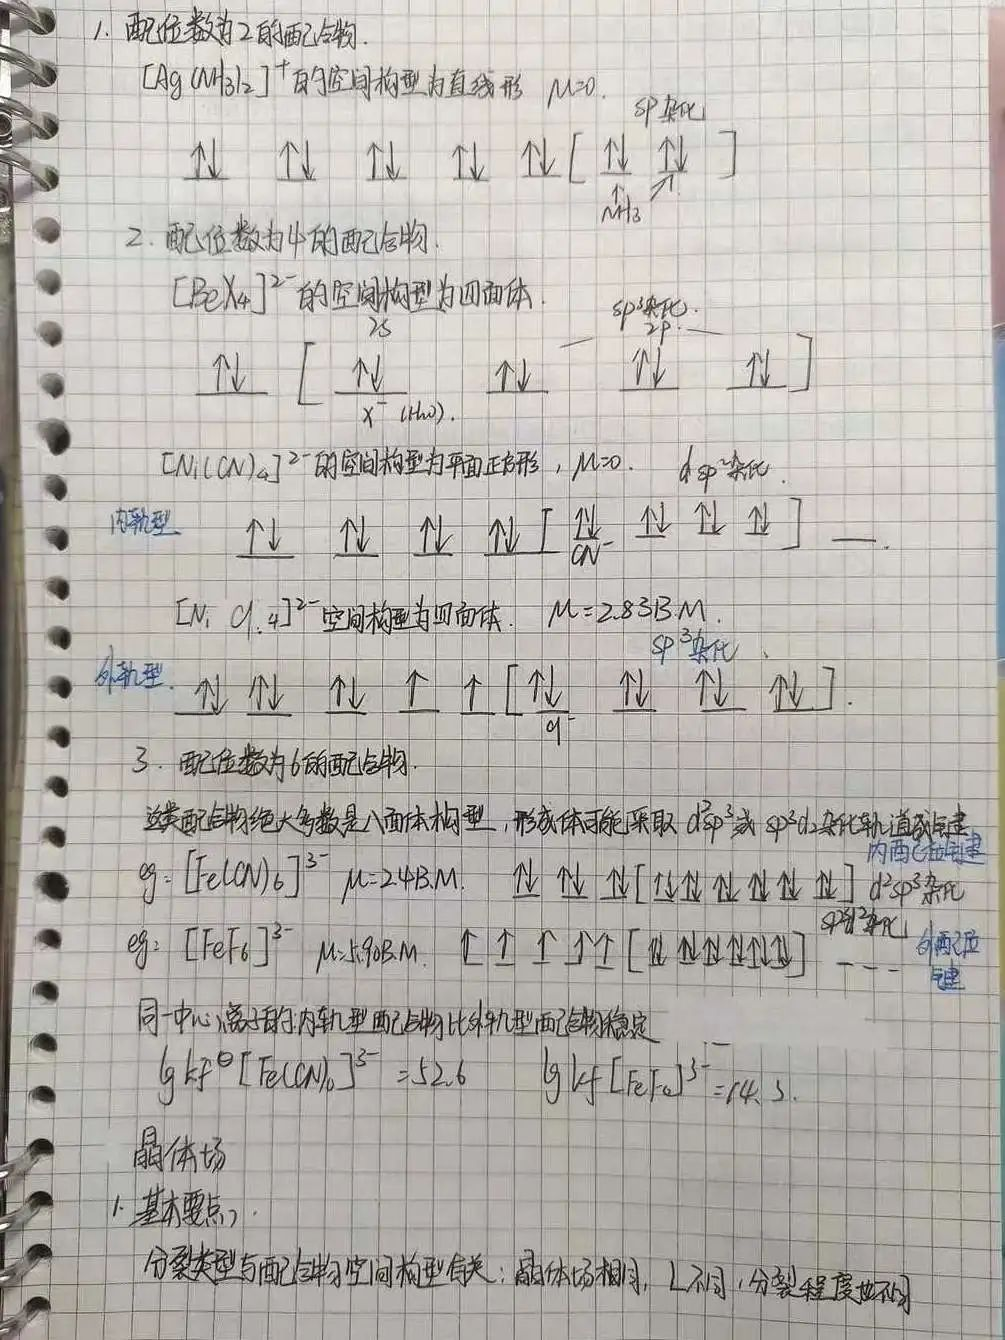 1. 配位数为2的配合物.
[Ag(NH3)2]⁺的空间构型为直线形 μ=0.
sp杂化
↑↓ ↑↓ ↑↓ ↑↓ ↑↓ [ ↑↓ ↑↓ ]
NH3
2. 配位数为4的配合物.
[BeX4]²⁻的空间构型为四面体.
sp³杂化.
2s 2p.
↑↓ [ ↑↓ ↑↓ ↑↓ ↑↓ ]
X⁻ (H2O).
[Ni(CN)4]²⁻的空间构型为平面正方形, μ=0. dsp²杂化.
内轨型 ↑↓ ↑↓ ↑↓ ↑↓ [ ↑↓ ↑↓ ↑↓ ↑↓ ] __.
CN⁻
[NiCl4]²⁻空间构型为四面体. μ=2.83B.M.
sp³杂化.
外轨型. ↑↓ ↑↓ ↑↓ ↑ ↑ [ ↑↓ ↑↓ ↑↓ ↑↓ ].
Cl⁻
3. 配位数为6的配合物.
这类配合物绝大多数是八面体构型, 形成体可能采取d²sp³或sp³d2杂化轨道成键
内配位键
eg: [Fe(CN)6]³⁻ μ=2.4B.M. ↑↓ ↑↓ ↑↓ [ ↑↓ ↑↓ ↑↓ ↑↓ ↑↓ ↑↓ ] d²sp³杂化
sp³d²杂化
eg: [FeF6]³⁻ μ=5.90B.M. ↑ ↑ ↑ ↑ ↑ [ ↑↓ ↑↓ ↑↓ ↑↓ ↑↓ ↑↓ ] _ _ _ 外配位键
同一中心离子的内轨型配合物比外轨型配合物稳定
lg kf⊖[Fe(CN)6]³⁻=52.6 lg kf[FeF6]³⁻=14.3.
晶体场
1. 基本要点
分裂类型与配合物空间构型有关; 晶体场相同, L不同, 分裂程度也不同